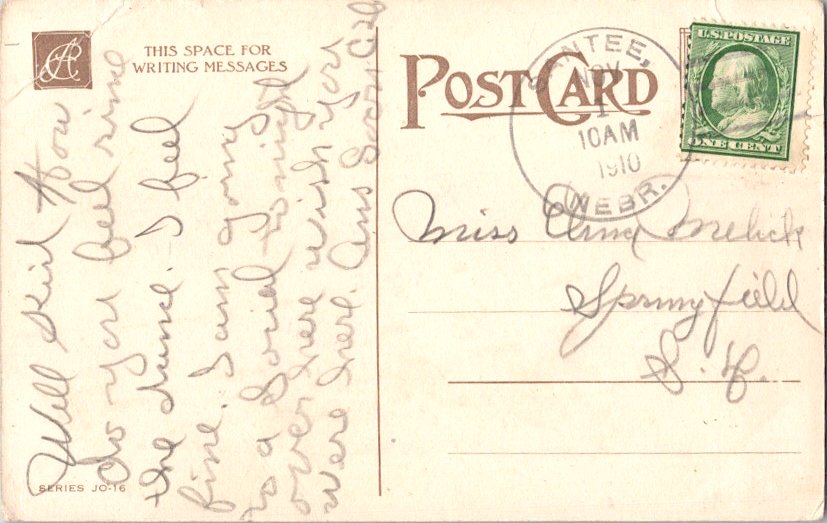 THIS SPACE FOR
WRITING MESSAGES
POST CARD
SANTEE,
NOV
1
10AM
1910
NEBR.
U.S. POSTAGE
ONE CENT
Miss Anna Melick
Springfield
S. D.
Well Kid How
do you feel since
the dance. I feel
fine. I am going
to a Social tonight
over here wish you
were here. Ans Soon
SERIES JO-16